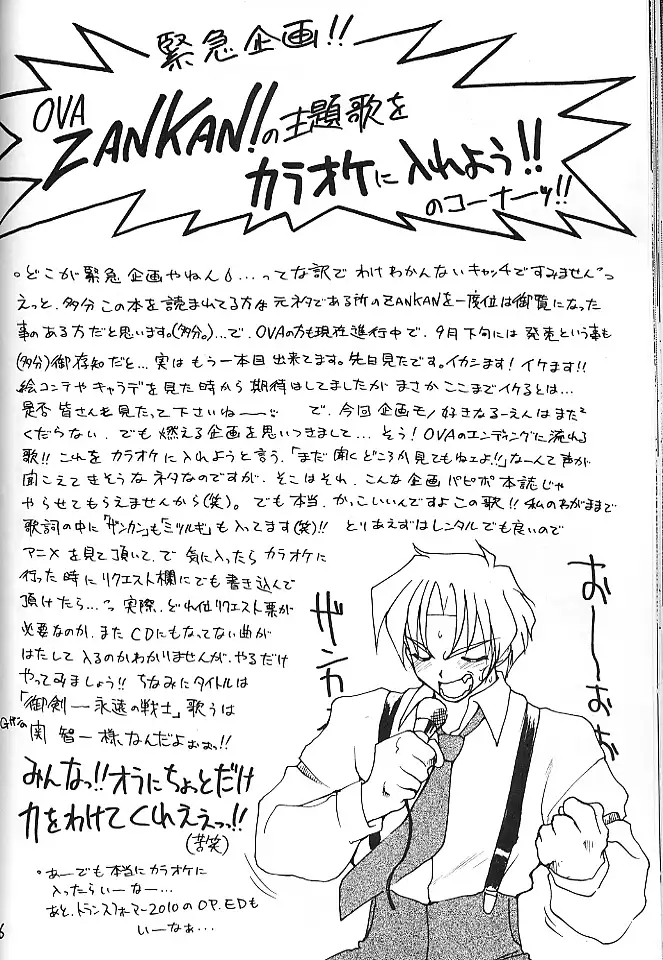 緊急企画!!
OVA
ZANKAN!の主題歌を
カラオケに入れよう!!
のコーナーッ!!
。どこが緊急企画やねん6…ってな訳でわけわかんないキャンチですみません〃っ
えっと、多分この本を読まれてる方は元ネタである所のZANKANを一度位は御覧になった
事のある方だと思います。(多分。)…で、OVAの方も現在進行中で、9月下旬には発売という事も
(多分)御存知だと…実はもう一本目出来てます。先日見たです。イカシます!イケます!!
絵コンテやキャラデを見た時から期待はしてましたがまさかここまでイケるとは…
是否皆さんも見たって下さいねー で、今回企画モノ好きなるーえんはまた²
くだらない、でも燃える企画を思いつきまして…そう!OVAのエンディングに流れる
歌!!これをカラオケに入れようと言う、「まだ聞くどころか見てもねェよ!!」なーんて声が
聞こえてきそうなネタなのですが、そこはそれ、こんな企画パピポ本誌じゃ
やらせてもらえませんから(笑)。でも本当、かっこいいんですよこの歌!!私のわがままで
歌詞の中に「ザンカン」も「ミツルギ」も入ってます(笑)!!とりあえずはレンタルでも良いので
アニメを見て頂いて、で気に入ったらカラオケに
行った時にリクエスト欄にでも書き込んで
頂けたら…〃っ実際、どれ位リクエスト票が
必要なのか、またCDにもなってない曲が
はたして入るのかわかりませんが、やるだけ
やってみましょう!!ちなみにタイトルは
「御剣―永遠の戦士」歌うは
Gガンの
関智一様なんだよぉぉっ!!
みんなっ!!オラにちょっとだけ
力をわけてくれええっっ!!
(苦笑)
。あーでも本当にカラオケに
入ったらいーなー…
あと、トランスフォーマー2010のOP.EDも
いーなぁ…
ザンカ
おーーおおぢ
6